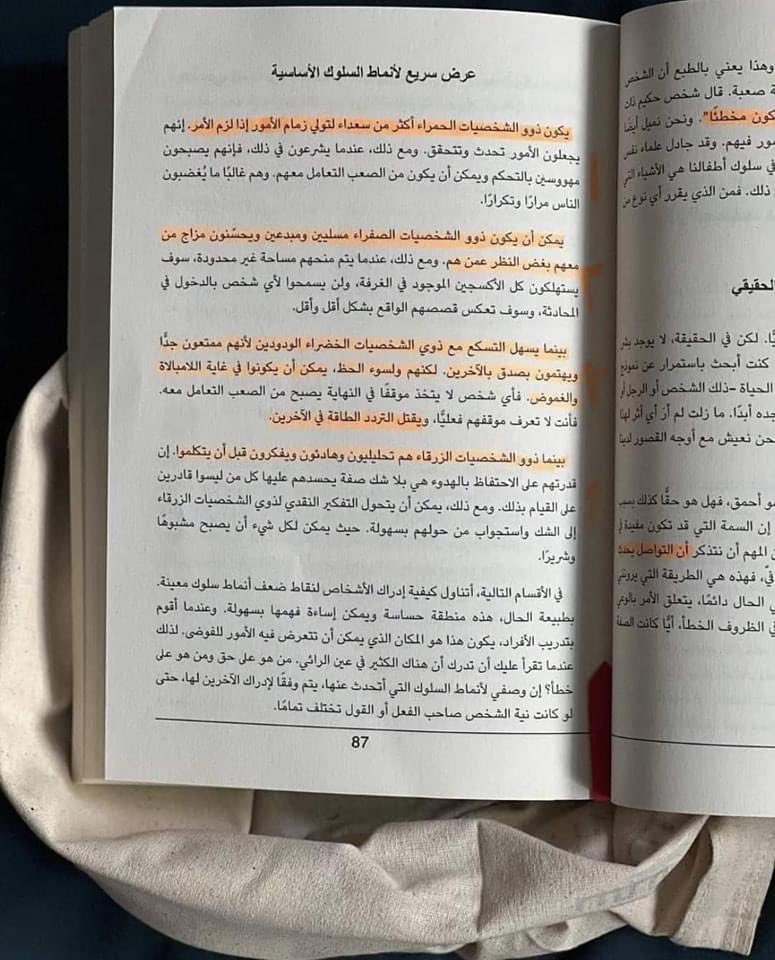 عرض سريع لأنماط السلوك الأساسية
يكون ذوو الشخصيات الحمراء أكثر من سعداء لتولي زمام الأمور إذا لزم الأمر. إنهم
يجعلون الأمور تحدث وتتحقق. ومع ذلك، عندما يشرعون في ذلك، فإنهم يصبحون
مهووسين بالتحكم ويمكن أن يكون من الصعب التعامل معهم. وهم غالبًا ما يُغضبون
الناس مرارًا وتكرارًا.
يمكن أن يكون ذوو الشخصيات الصفراء مسليين ومبدعين ويحسّنون مزاج من
معهم بغض النظر عمن هم. ومع ذلك، عندما يتم منحهم مساحة غير محدودة، سوف
يستهلكون كل الأكسجين الموجود في الغرفة، ولن يسمحوا لأي شخص بالدخول في
المحادثة، وسوف تعكس قصصهم الواقع بشكل أقل وأقل.
بينما يسهل التسكع مع ذوي الشخصيات الخضراء الودودين لأنهم ممتعون جدًّا
ويهتمون بصدق بالآخرين. لكنهم ولسوء الحظ، يمكن أن يكونوا في غاية اللامبالاة
والغموض. فأي شخص لا يتخذ موقفًا في النهاية يصبح من الصعب التعامل معه.
فأنت لا تعرف موقفهم فعليًّا، ويقتل التردد الطاقة في الآخرين.
بينما ذوو الشخصيات الزرقاء هم تحليليون وهادئون ويفكرون قبل أن يتكلموا. إن
قدرتهم على الاحتفاظ بالهدوء هي بلا شك صفة يحسدهم عليها كل من ليسوا قادرين
على القيام بذلك. ومع ذلك، يمكن أن يتحول التفكير النقدي لذوي الشخصيات الزرقاء
إلى الشك واستجواب من حولهم بسهولة. حيث يمكن لكل شيء أن يصبح مشبوهًا
وشريرًا.
في الأقسام التالية، أتناول كيفية إدراك الأشخاص لنقاط ضعف أنماط سلوك معينة.
بطبيعة الحال، هذه منطقة حساسة ويمكن إساءة فهمها بسهولة. وعندما أقوم
بتدريب الأفراد، يكون هذا هو المكان الذي يمكن أن تتعرض فيه الأمور للفوضى. لذلك
عندما تقرأ عليك أن تدرك أن هناك الكثير في عين الرائي. من هو على حق ومن هو على
خطأ؟ إن وصفي لأنماط السلوك التي أتحدث عنها، يتم وفقًا لإدراك الآخرين لها، حتى
لو كانت نية الشخص صاحب الفعل أو القول تختلف تمامًا.
87
وهذا يعني بالطبع أن الشخص
صعبة. قال شخص حكيم ذات
كون مخطئًا". ونحن نميل أيضًا
فيهم. وقد جادل علماء نفس
في سلوك أطفالنا هي الأشياء التي
ذلك. فمن الذي يقرر أي نوع من
الحقيقي
لكن في الحقيقة، لا يوجد بشر
كنت أبحث باستمرار عن نموذج
الحياة –ذلك الشخص أو الرجل أو
أبدًا. ما زلت لم أر أي أثر لهذا
نعيش مع أوجه القصور لدينا
أحمق، فهل هو حقًّا كذلك بسبب
إن السمة التي قد تكون مفيدة في
المهم أن نتذكر أن التواصل يحدث
فهذه هي الطريقة التي يرونني
الحال دائمًا، يتعلق الأمر بالوعي
في الظروف الخطأ. أيًّا كانت الصفة